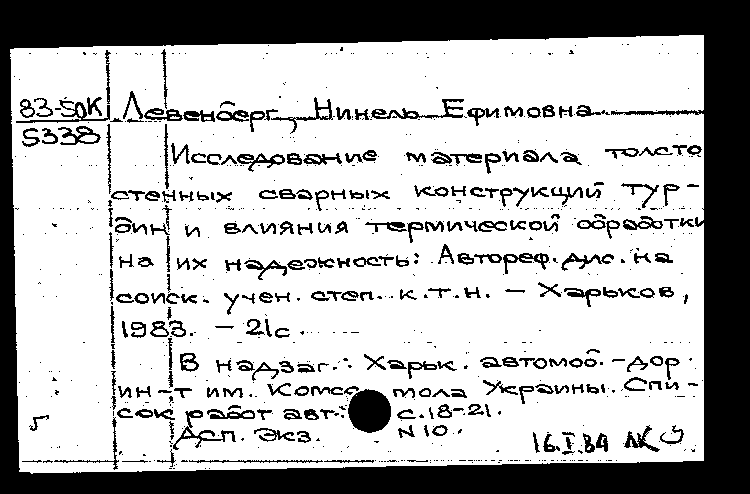 83-50К Левенберг, Нинель Ефимовна
5338
Исследование материала толсто
стенных сварных конструкций тур-
бин и влияния термической обработки
на их надежность: Автореф. дис. на
соиск. учен. степ. к.т.н. – Харьков,
1983. – 21с.
В надзаг.: Харьк. автомоб.-дор.
ин-т им. Комсомола Украины. Спи-
сок работ авт.: с.18-21.
Дсп. Экз. N10.
16.I.84